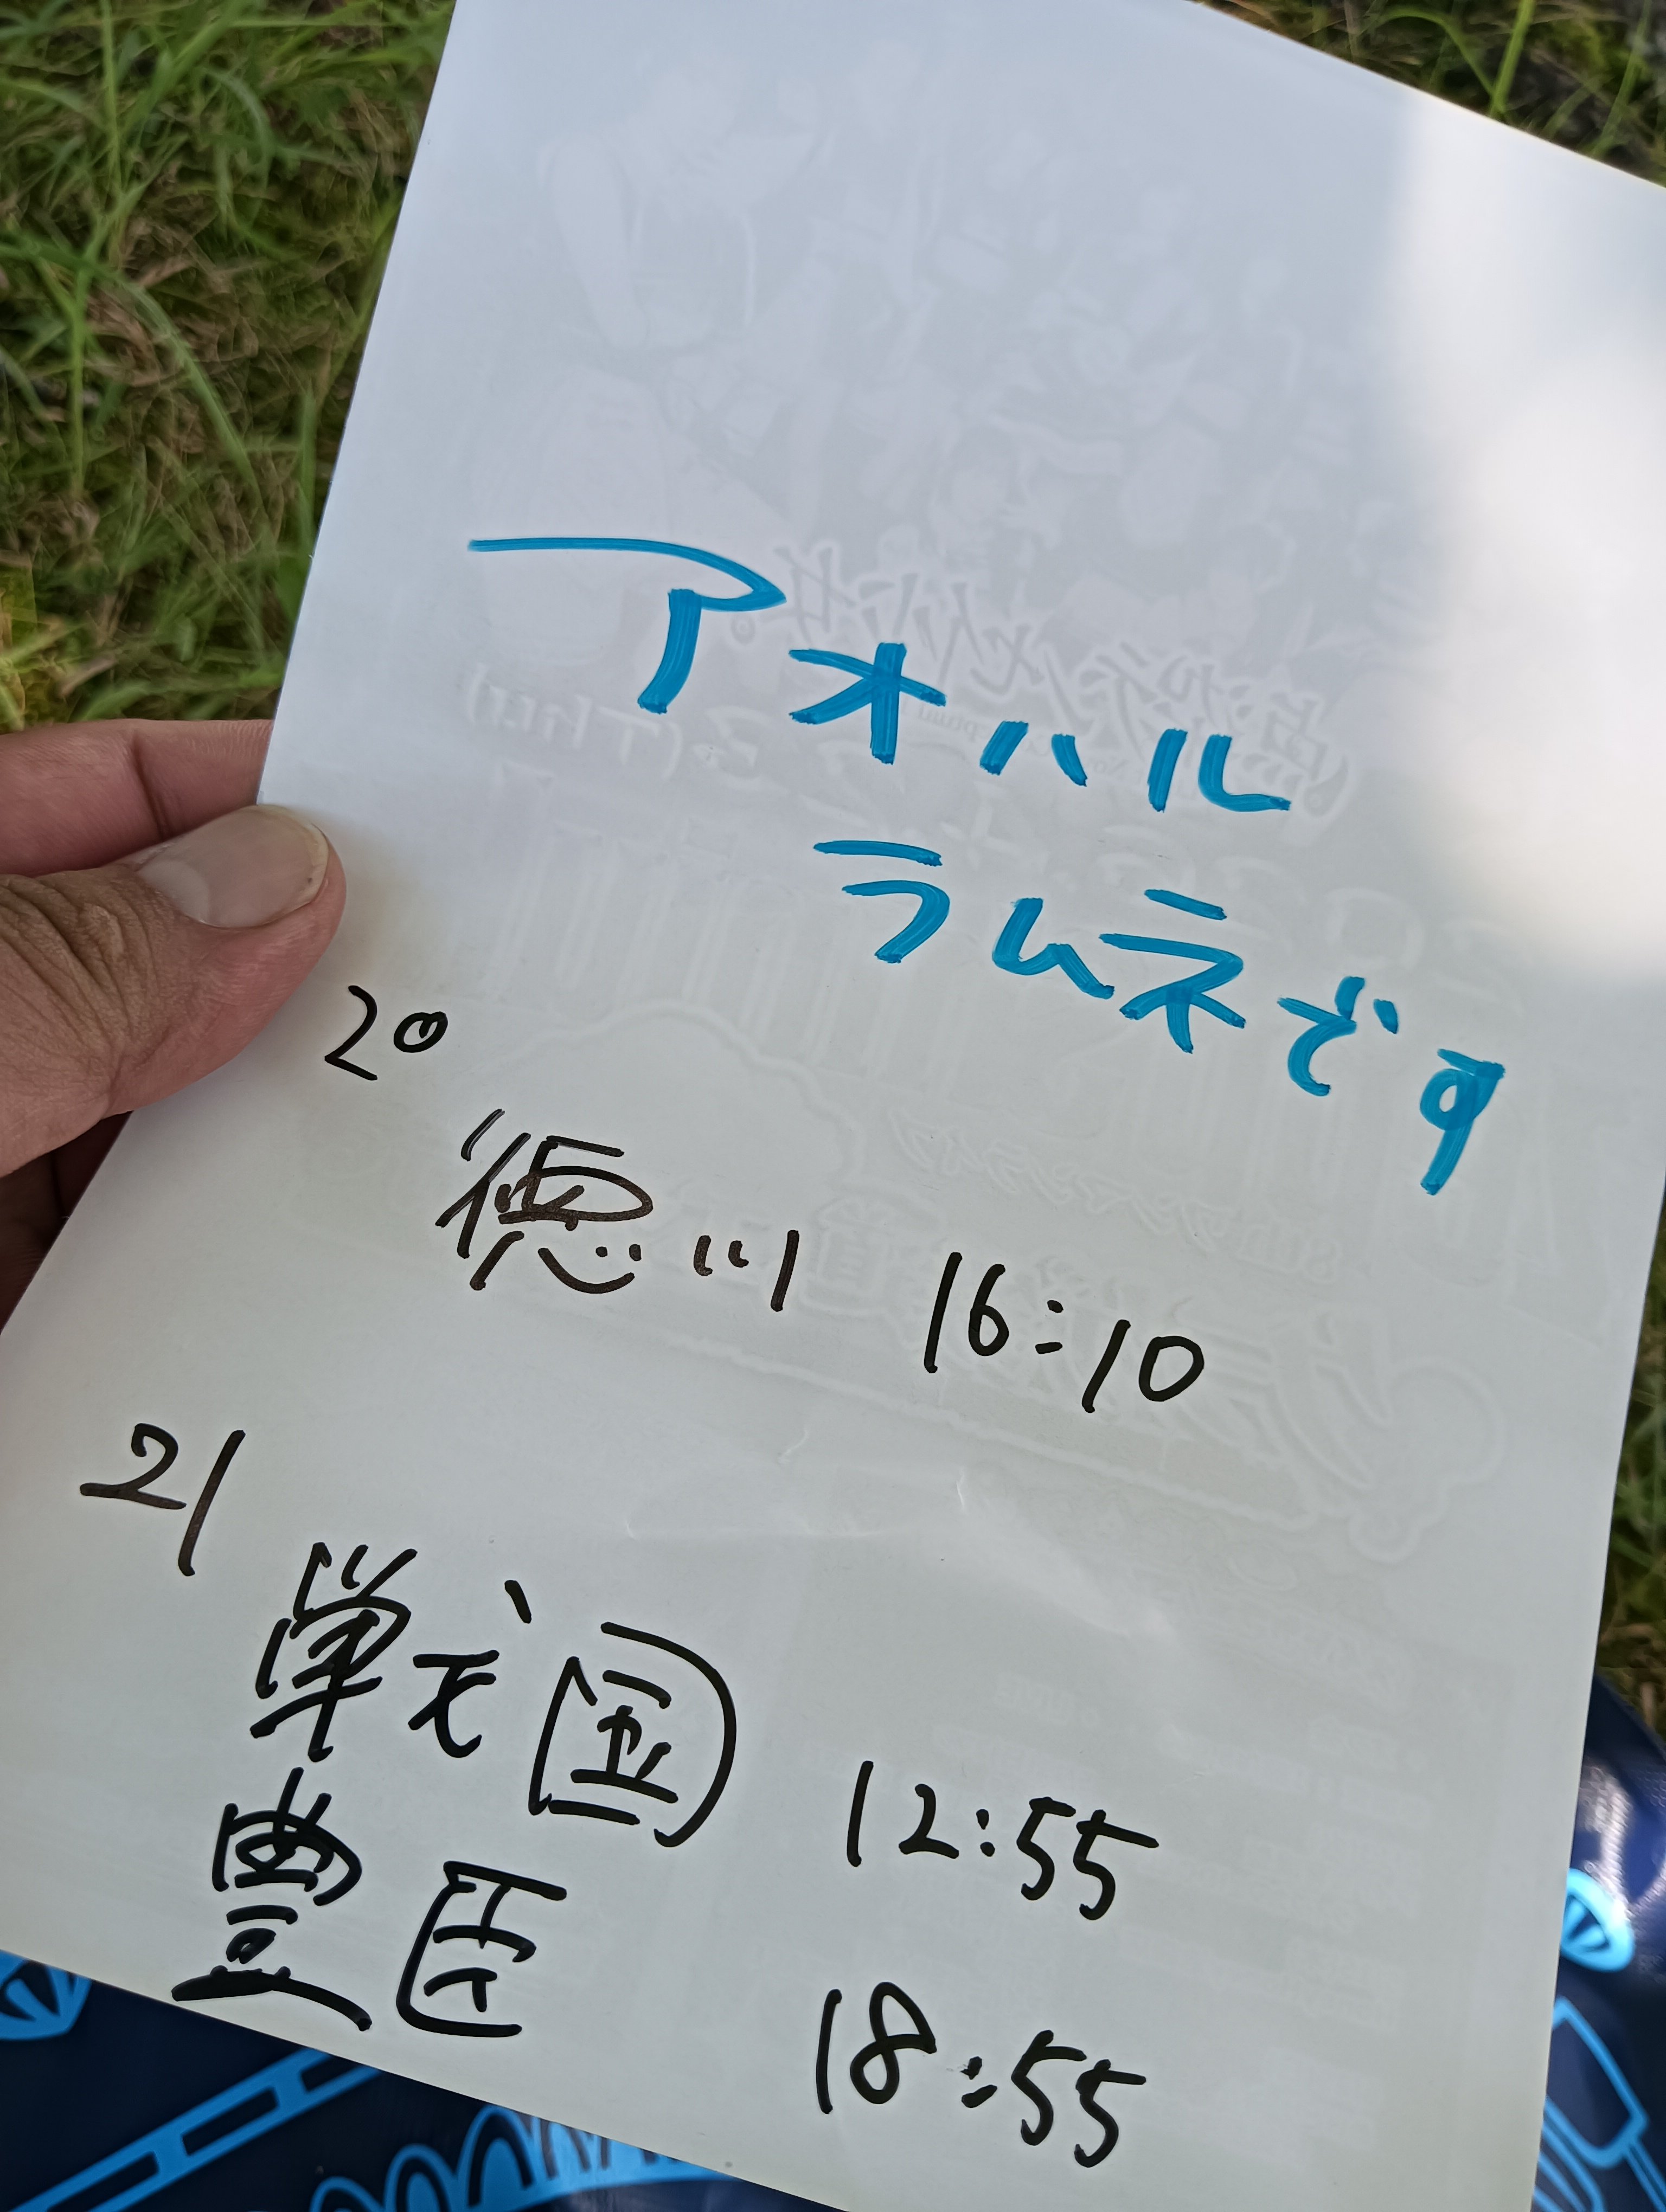 アオハル
ラムネです
20
徳川 16:10
21
戦国 12:55
豊臣 18:55